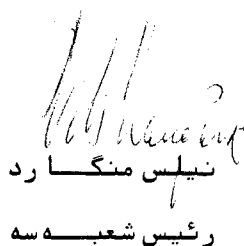 نیلس منگارد
رئیس شعبه سه